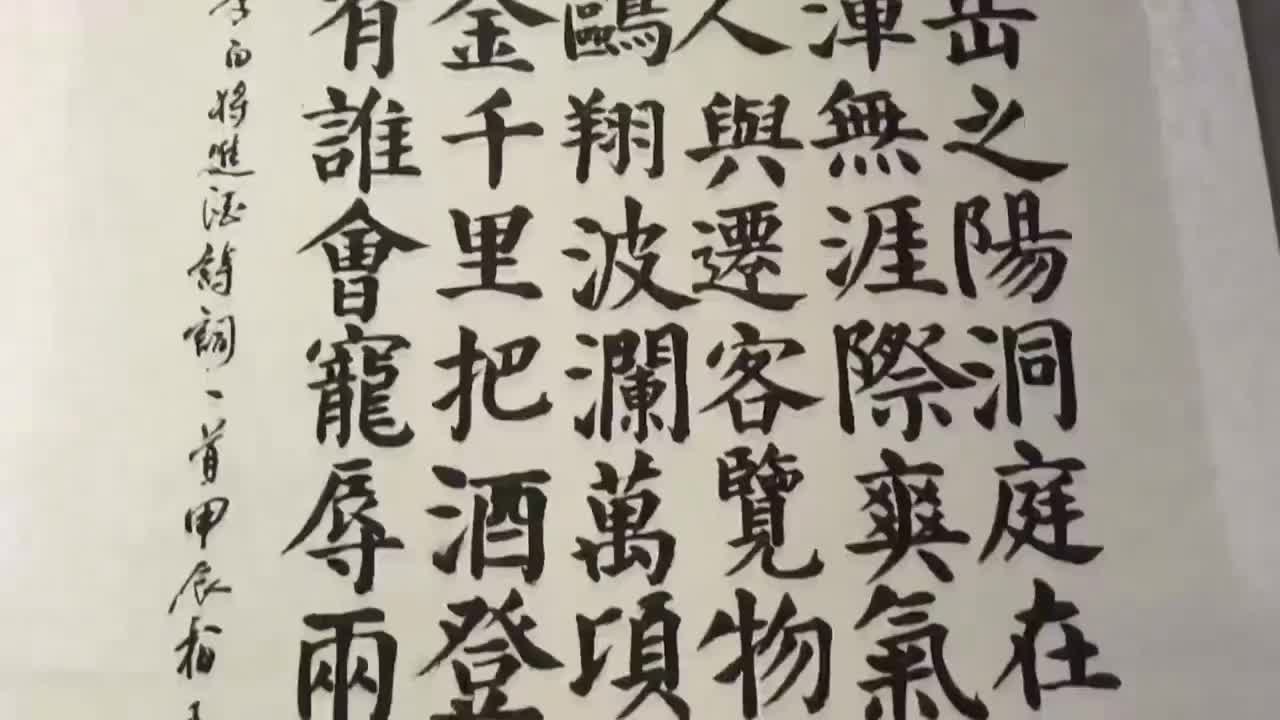 岳之陽洞庭在
渾無涯際爽氣
人與遷客覽物
鷗翔波瀾萬頃
金千里把酒登
有誰會寵辱兩
白將進酒詩詞一首甲辰